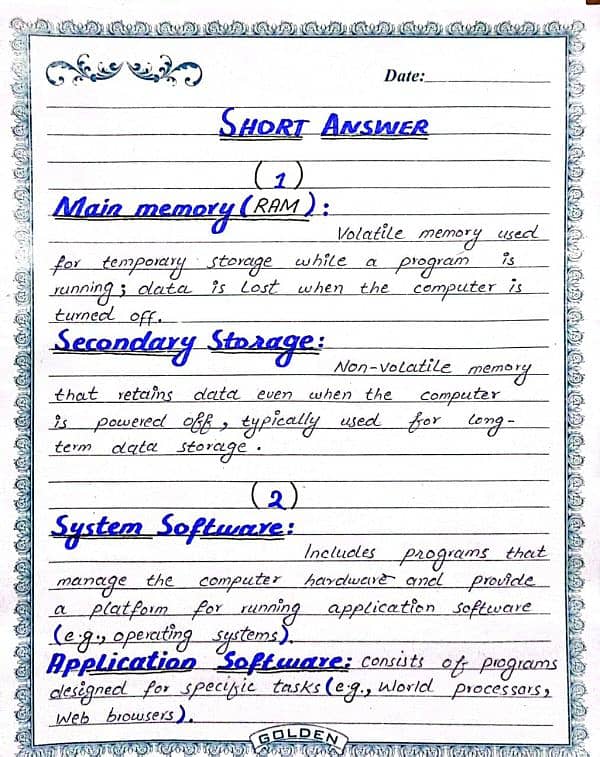 Date:
SHORT ANSWER
(1)
Main memory (RAM):
Volatile memory used
for temporary storage while a program is
running; data is lost when the computer is
turned off.
Secondary Storage:
Non-volatile memory
that retains data even when the computer
is powered off, typically used for long-
term data storage.
(2)
System Software:
Includes programs that
manage the computer hardware and provide
a platform for running application software
(e.g., operating systems).
Application Software: consists of programs
designed for specific tasks (e.g., World processors,
web browsers).
GOLDEN